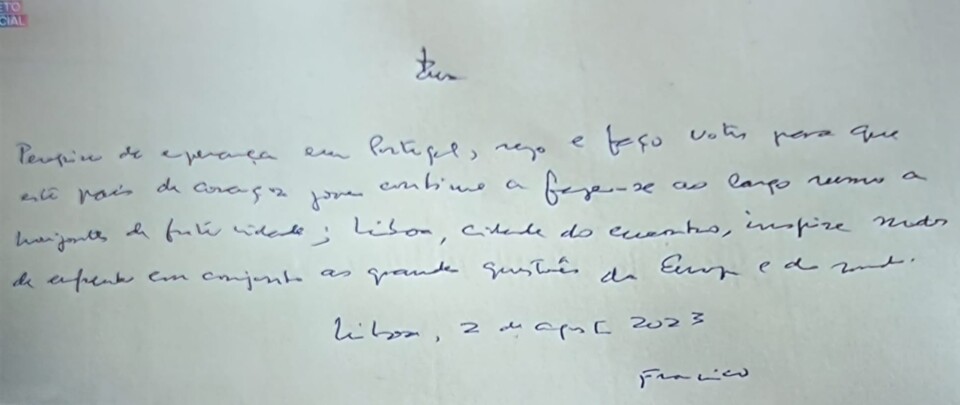 ETO
CIAL
Peregrino de esperança em Portugal, rezo e faço votos para que
este país de coração jovem continue a fazer-se ao largo rumo a
horizontes de fraternidade; Lisboa, cidade do encontro, inspire modos
de enfrentar em conjunto as grandes questões da Europa e do mundo.
Lisboa, 2 de agosto 2023
Francisco